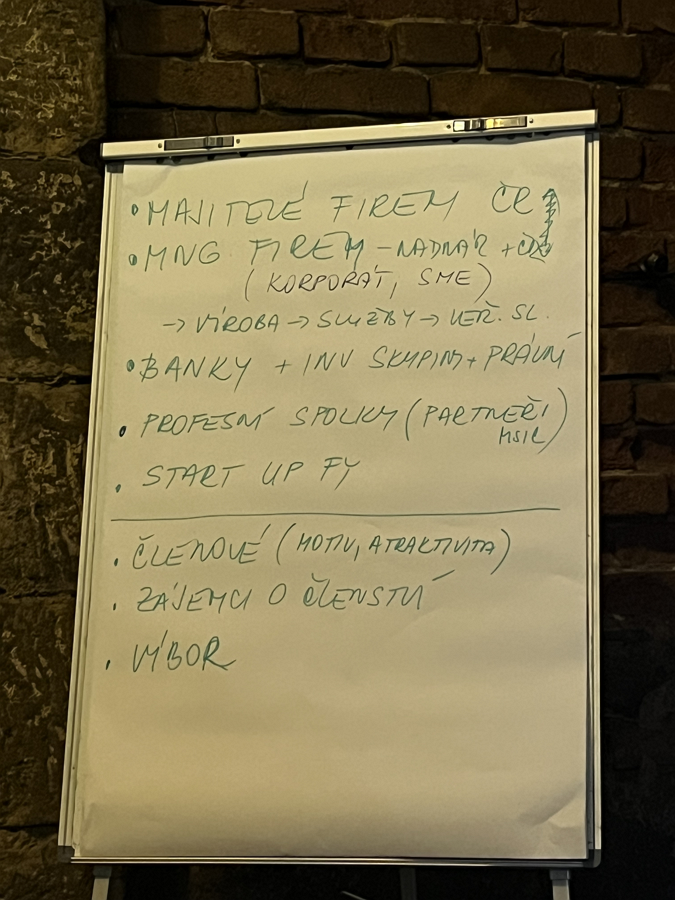 • MAJITELÉ FIREM ČR
• MNG FIREM - NADNÁR +
(KORPORÁT, SME)
→ VÍROBA → SLUŽBY → VEŘ. SL.
• BANKY + INV SKUPINY + PRÁVNÍ
• PROFESNÍ SPOLKY (PARTNEŘI
MSIL)
• START UP FY
• ČLENOVÉ (MOTIV, ATRAKTIVITA)
• ZÁJEMCI O ČLENSTVÍ
• VÝBOR